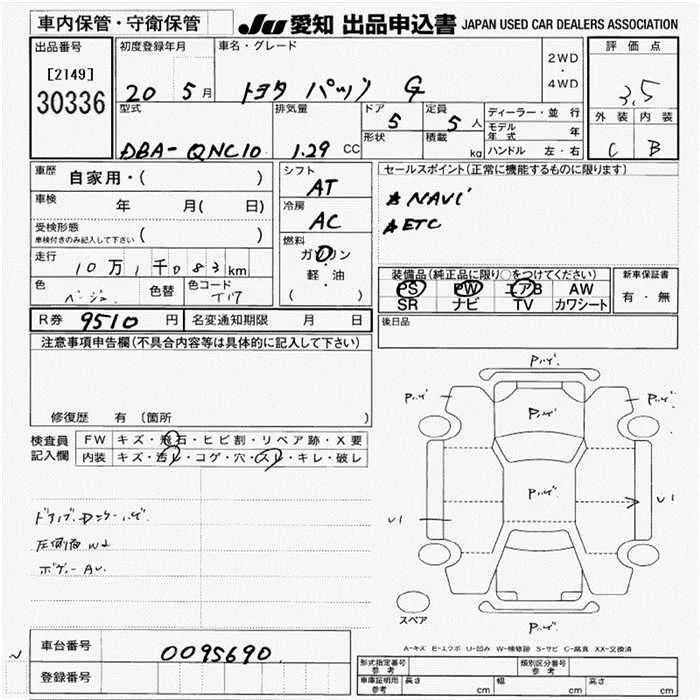 車内保管・守衛保管 JU 愛知 出品申込書 JAPAN USED CAR DEALERS ASSOCIATION
出品番号 初度登録年月 車名・グレード 2WD・4WD 評価点
[2149]
30336
20 5月 トヨタ パッソ G 3.5
型式 排気量 ドア 定員 ディーラー・並行 外装 内装
DBA-QNC10 1.29 CC 5 5人 モデル年式 年 C B
形状 積載 kg ハンドル 左・右
車歴 自家用・( ) シフト AT セールスポイント(正常に機能するものに限ります)
車検 年 月( 日) 冷房 AC ★NAVi
★ETC
受検形態 ( )
車検付きのみ記入して下さい
燃料 ガソリン
軽・油
( )
走行 10万1千083km
色 ベージュ 色替 色コード T17
装備品(純正品に限り○をつけてください) 新車保証書
PS PW エアB AW 有・無
SR ナビ TV カワシート
R券 9510円 名変通知期限 月 日 後日品
注意事項申告欄(不具合内容等は具体的に記入して下さい)
修復歴 有(箇所 )
検査員記入欄 FW キズ・飛石・ヒビ割・リペア跡・X要
内装 キズ・汚レ・コゲ・穴・スレ・キレ・破レ
Pハゲ
Pハゲ Pハゲ Pハゲ
Pハゲ
U1 U1
Pハゲ
スペア
A-キズ E-エクボ U-凹み W-補修跡 S-サビ C-腐食 XX-交換済
車台番号 0095690
登録番号
形式指定番号 参考 類別区分番号 参考
車庫証明用 参考 長さ cm 幅 cm 高さ cm